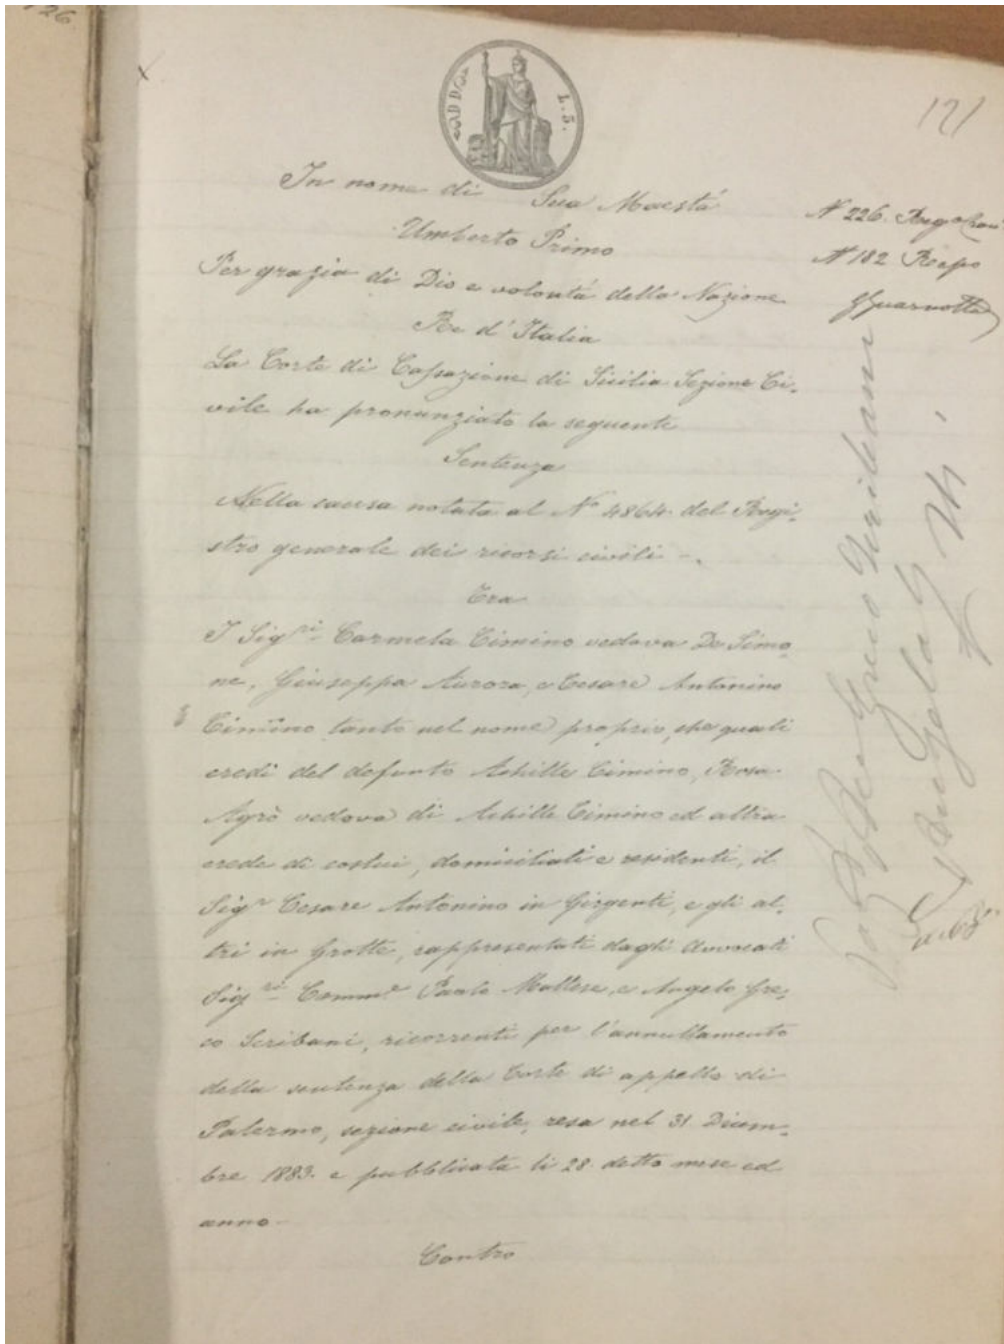 126
L. 3.
121
In nome di Sua Maestá
Umberto Primo
Per grazia di Dio e volontá della Nazione
Re d'Italia
N 226. Reg
N 182 Repo
GGuarnotta
La Corte di Cassazione di Sicilia Sezione Ci-
vile ha pronunziato la seguente
Sentenza
Nella causa notata al N° 4864 del Regi-
stro generale dei ricorsi civili -.
Tra
I Sigri Carmela Cimino vedova De Simo
ne, Giuseppa Aurora, e Cesare Antonino
Cimino tanto nel nome proprio, che quali
eredi del defunto Achille Cimino, Rosa
Agrò vedova di Achille Cimino ed altra
erede di costui, domiciliati e residenti, il
Sigr Cesare Antonino in Girgenti, e gli al-
tri in Grotte, rappresentati dagli Avvocati
Sigri Comme Paolo Maltese, e Angelo Gre-
co Scribani, ricorrenti per l'annullamento
della sentenza della Corte di appello di
Palermo, sezione civile, resa nel 31. Dicem-
bre 1883. e pubblicata li 28. detto mese ed
anno -
Contro
Greco Scribani
Angelo